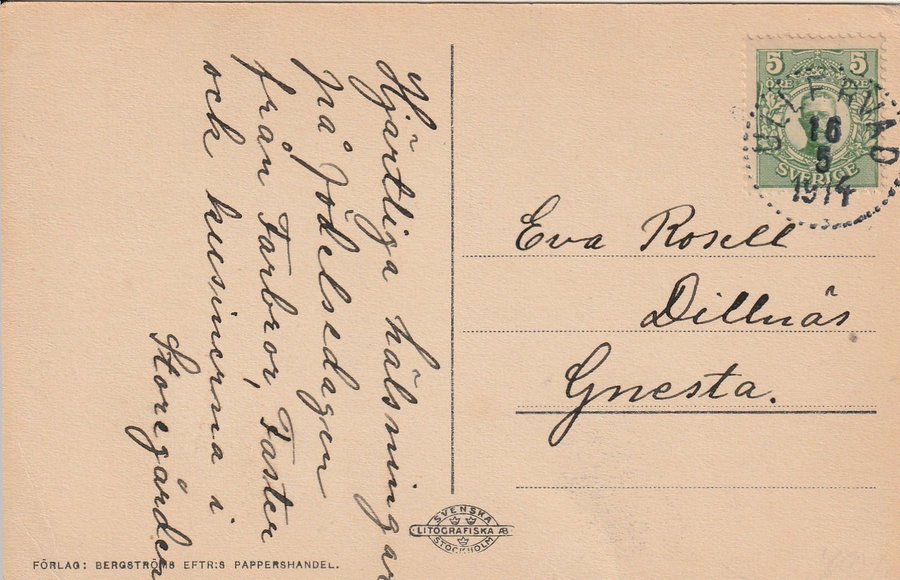 Hjärtliga hälsningar
på födelsedagen
från Farbror, Faster
och kusinerna i
Storegården
5 5
SVERIGE
ULLERVAD
16
5
1914
Eva Rosell
Dillnäs
Gnesta.
SVENSKA
LITOGRAFISKA AB
STOCKHOLM
FÖRLAG: BERGSTRÖMS EFTR:S PAPPERSHANDEL.